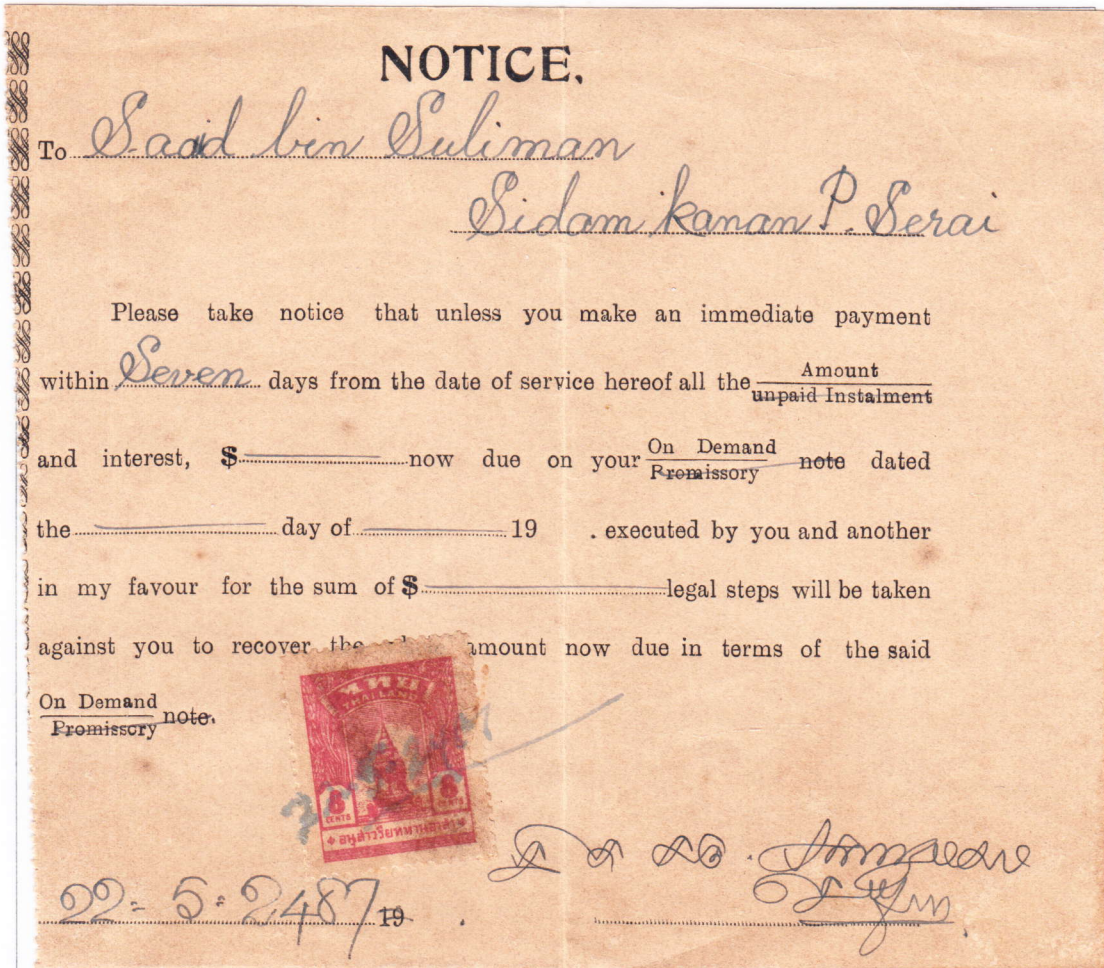 NOTICE.
To Saad bin Suliman
Sidam kanan P. Serai
Please take notice that unless you make an immediate payment
within Seven days from the date of service hereof all the Amount
unpaid Instalment
and interest, $ now due on your On Demand
Promissory note dated
the day of 19 . executed by you and another
in my favour for the sum of $ legal steps will be taken
against you to recover the amount now due in terms of the said
On Demand
Promissory note.
THAILAND
8 CENTS 8 CENTS
22-5-2487 19 .